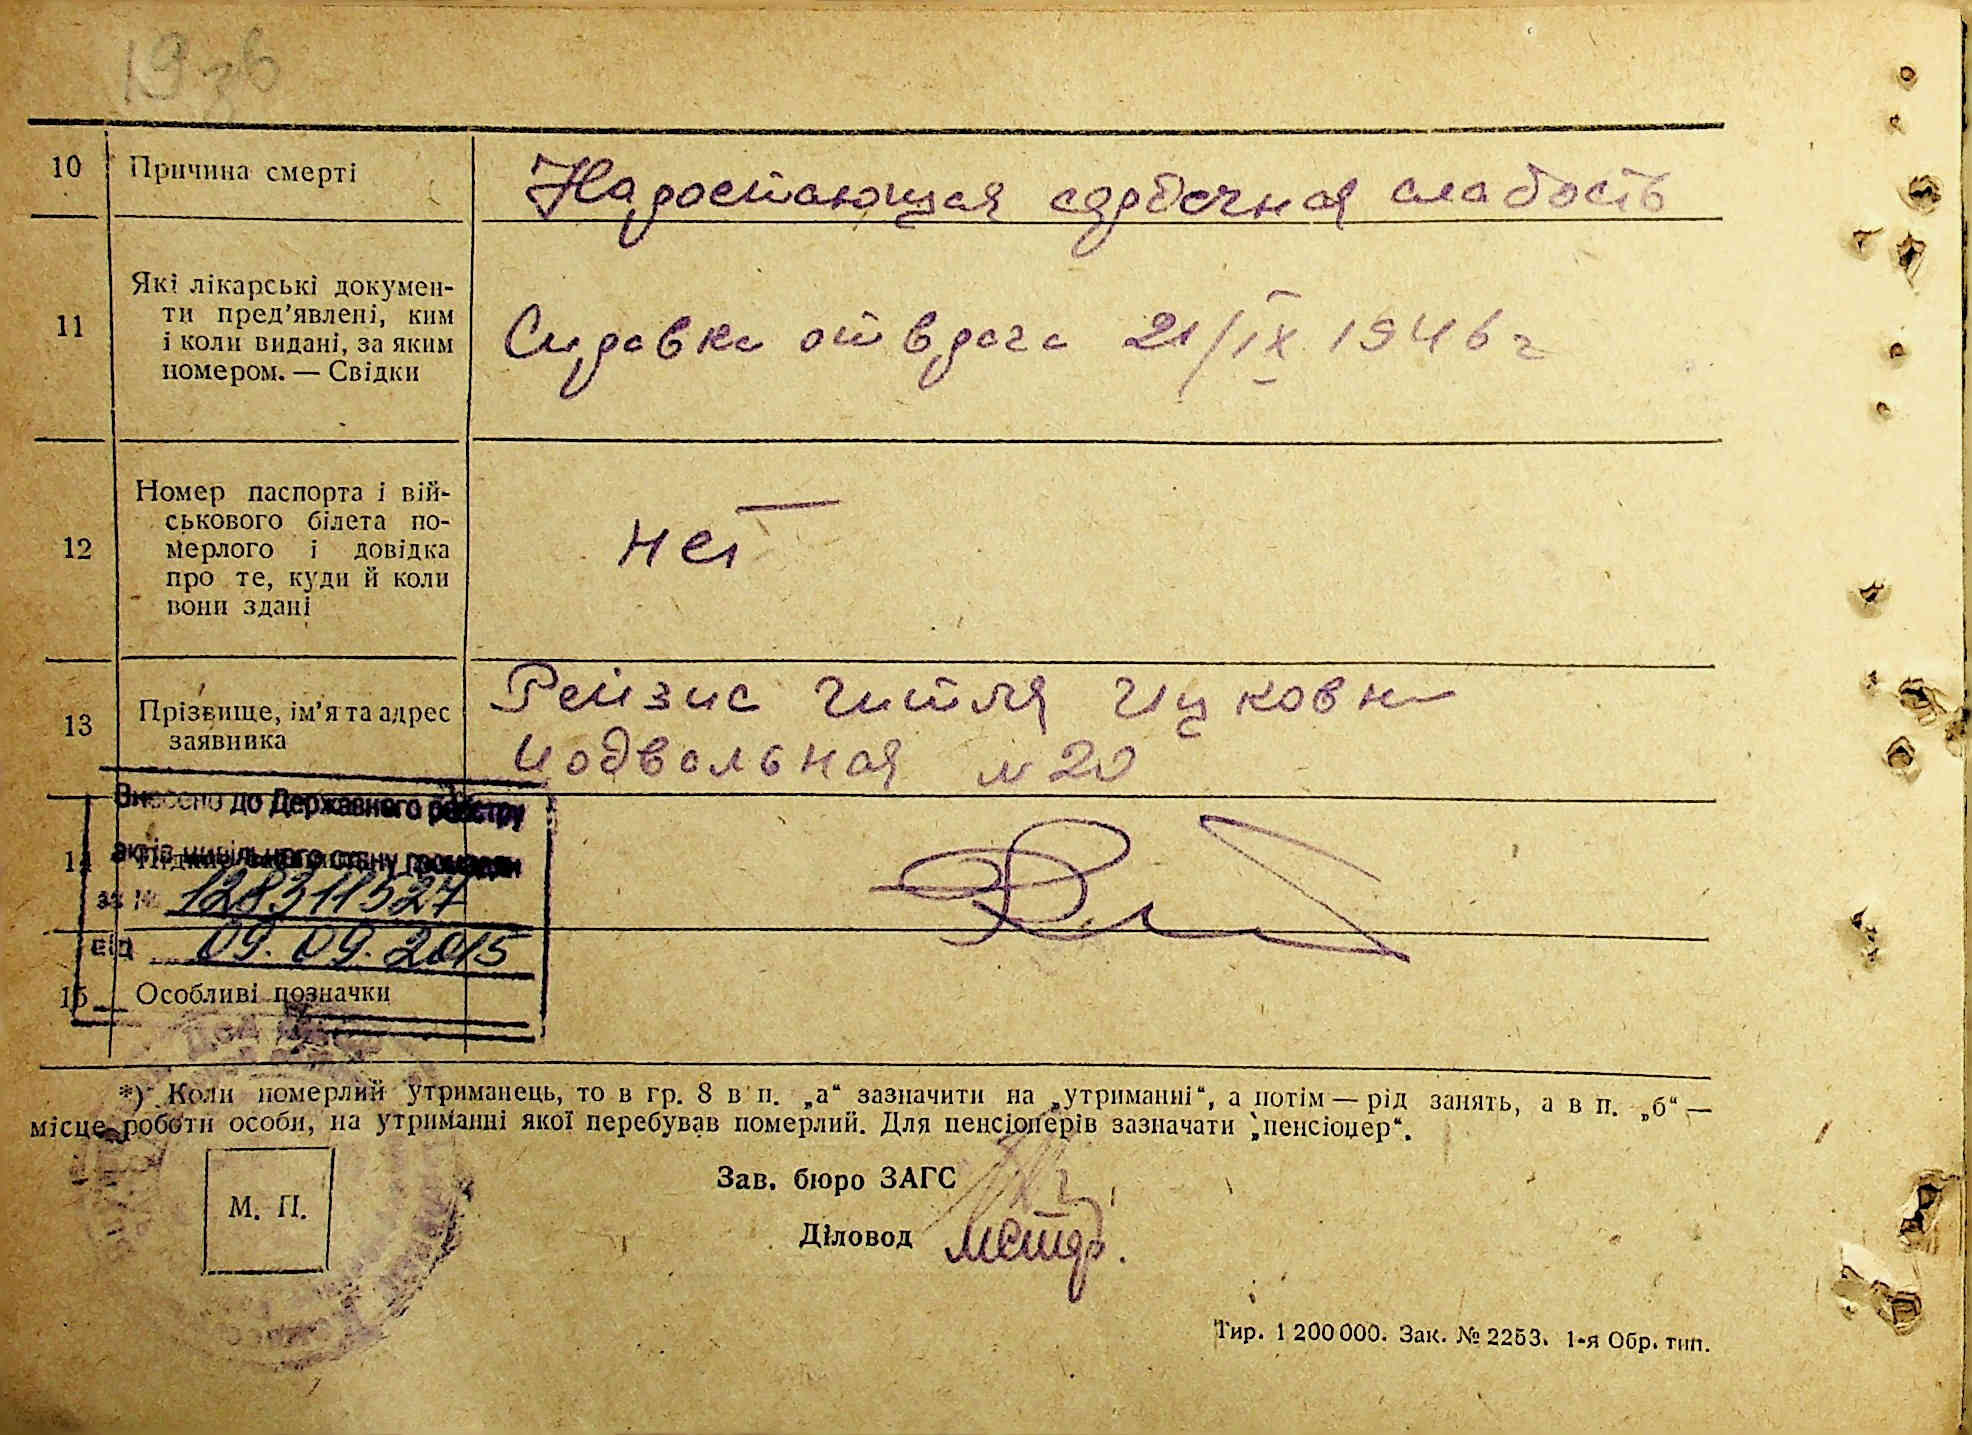 19зв
10 Причина смерті Надостающая сердечная слабость
11 Які лікарські докумен-
ти пред'явлені, ким
і коли видані, за яким
номером. — Свідки
Справка от врача 21/IX 1946 г
12 Номер паспорта і вій-
ськового білета по-
мерлого і довідка
про те, куди й коли
вони здані
нет
13 Прізвище, ім'я та адрес
заявника
Рейзис Гитля Ицковна
Подвальная №20
Внесено до Державного реєстру
актів цивільного стану громадян
14
за № 128311527
від 09.09.2015
15 Особливі позначки
*) Коли померлий утриманець, то в гр. 8 в п. „а“ зазначити на „утриманні“, а потім — рід занять, а в п. „б“ —
місце роботи особи, на утриманні якої перебував померлий. Для пенсіонерів зазначати „пенсіонер“.
М. П.
Зав. бюро ЗАГС
Діловод
Тир. 1 200 000. Зак. № 2253. 1-я Обр. тип.